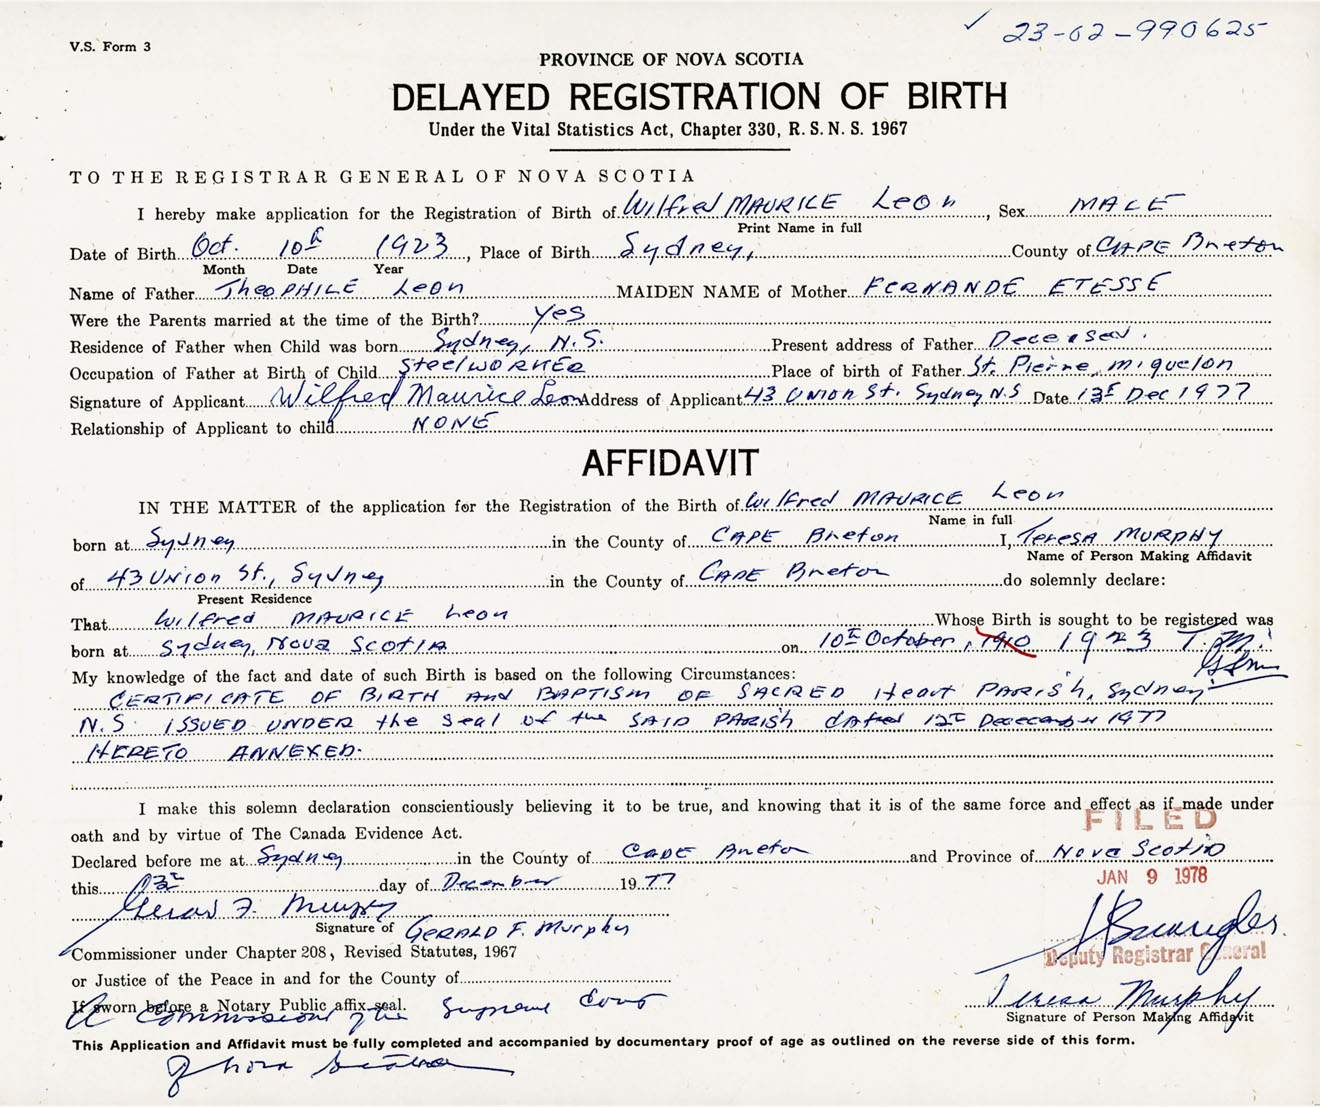 V.S. Form 3
✓ 23-02-990625
PROVINCE OF NOVA SCOTIA
DELAYED REGISTRATION OF BIRTH
Under the Vital Statistics Act, Chapter 330, R.S.N.S. 1967
TO THE REGISTRAR GENERAL OF NOVA SCOTIA
I hereby make application for the Registration of Birth of Wilfred MAURICE Leon, Sex MALE
Print Name in full
Date of Birth Oct. 10th 1923, Place of Birth Sydney, County of CAPE Breton
Month Date Year
Name of Father TheoPHILE Leon MAIDEN NAME of Mother FERNANDE ETESSE
Were the Parents married at the time of the Birth? Yes
Residence of Father when Child was born Sydney, N.S. Present address of Father Deceased.
Occupation of Father at Birth of Child SteelWORKER Place of birth of Father St. Pierre, miquelon
Signature of Applicant Wilfred Maurice Leon Address of Applicant 43 Union St. Sydney N.S Date 13th Dec 1977
Relationship of Applicant to child NONE
AFFIDAVIT
IN THE MATTER of the application for the Registration of the Birth of Wilfred MAURICE Leon
Name in full
born at Sydney in the County of CAPE Breton I, TeresA MURPHY
Name of Person Making Affidavit
of 43 Union St., Sydney in the County of CAPE Breton do solemnly declare:
Present Residence
That Wilfred MAURICE Leon Whose Birth is sought to be registered was
born at Sydney, Nova Scotia on 10th October, 1910 1923 T.M.
My knowledge of the fact and date of such Birth is based on the following Circumstances:
CERTIFICATE OF BIRTH and BAPTISM OF SACRED Heart PARISH, Sydney
N.S ISSUED UNDER the Seal of the SAID PARISH dated 12th Dececember 1977
HERETO ANNEXED.
I make this solemn declaration conscientiously believing it to be true, and knowing that it is of the same force and effect as if made under
oath and by virtue of The Canada Evidence Act.
FILED
Declared before me at Sydney in the County of CAPE Breton and Province of Nova Scotia
this day of December 1977
JAN 9 1978
Gerald F. Murphy
Signature of GERALD F. Murphy
Commissioner under Chapter 208, Revised Statutes, 1967
Deputy Registrar General
or Justice of the Peace in and for the County of
If sworn before a Notary Public affix seal.
A Commissioner of the Supreme Court
Teresa Murphy
Signature of Person Making Affidavit
This Application and Affidavit must be fully completed and accompanied by documentary proof of age as outlined on the reverse side of this form.
of Nova Scotia